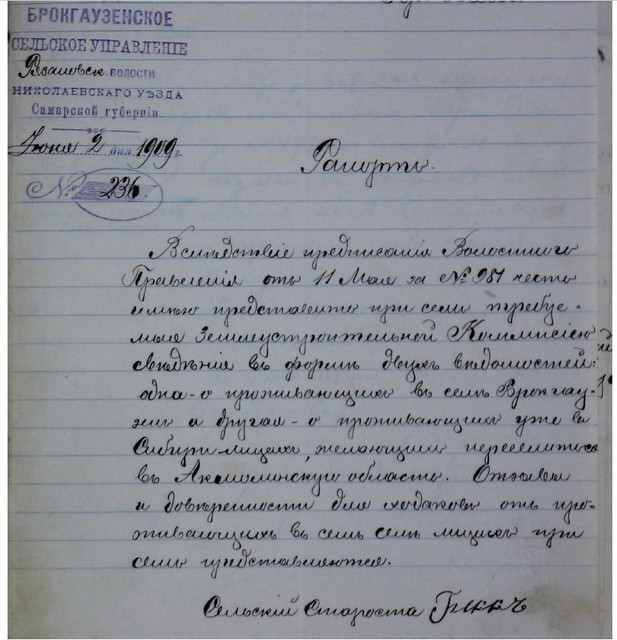 БРОКГАУЗЕНСКОЕ
СЕЛЬСКОЕ УПРАВЛЕНІЕ
волости
НИКОЛАЕВСКАГО УѢЗДА
Самарской губерніи
Іюня 2 дня 1909 г.
№ 236
Рапортъ.
Вслѣдствіе предписанія Волостного
Правленія отъ 11 Мая за № 981 честь
имѣю представить при семъ требуе-
мыя Землеустроительной Коммисіею
свѣдѣнія въ формѣ двухъ вѣдомостей:
одна - о проживающихъ въ селѣ Брокгау-
зенъ и другая - о проживающихъ уже въ
Сибири лицахъ, желающихъ переселиться
въ Акмолинскую область.
и довѣренности для ходаковъ отъ про-
живающихъ въ семъ селѣ лицъ при
семъ представляются.
Сельскій Староста